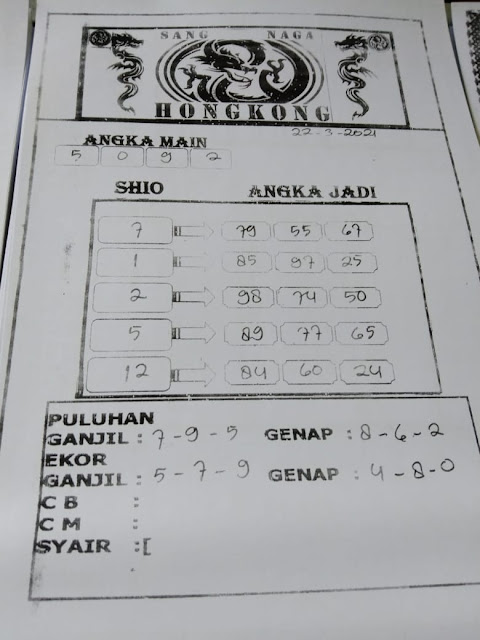 SANG NAGA
HONGKONG
22-3-2021
ANGKA MAIN
5 0 9 2
SHIO ANGKA JADI
7 79 55 67
1 85 97 25
2 98 74 50
5 89 77 65
12 84 60 24
PULUHAN
GANJIL : 7-9-5 GENAP : 8-6-2
EKOR
GANJIL : 5-7-9 GENAP : 4-8-0
C B :
C M :
SYAIR :[